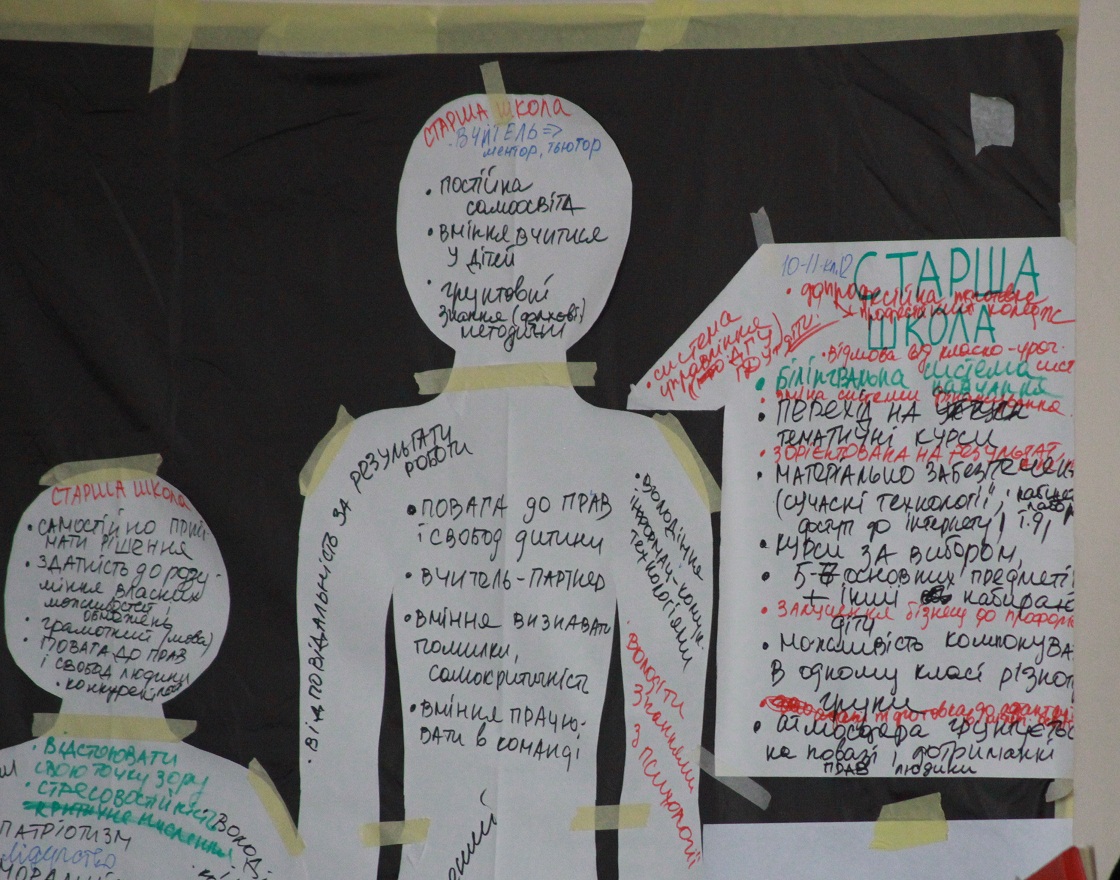 СТАРША ШКОЛА
ВЧИТЕЛЬ =>
ментор, тьютор
• ПОСТІЙНА
самоосвіта
• ВМІННЯ ВЧИТИСЯ
У ДІТЕЙ
• ґрунтовні
знання (фахові)
методики
• ВІДПОВІДАЛЬНІСТЬ ЗА РЕЗУЛЬТАТИ
РОБОТИ
• ПОВАГА ДО ПРАВ
І СВОБОД ДИТИНИ
• ВЧИТЕЛЬ-ПАРТНЕР
• ВМІННЯ ВИЗНАВАТИ
ПОМИЛКИ,
САМОКРИТИЧНІСТЬ
• ВМІННЯ ПРАЦЮ-
ВАТИ В КОМАНДІ
• ВОЛОДІННЯ
ІНФОРМ.-КОМУНІК.
ТЕХНОЛОГІЯМИ
• ВОЛОДІТИ
ЗНАННЯМИ
З ПСИХОЛОГІЇ
СТАРША ШКОЛА
• САМОСТІЙНО ПРИЙ-
МАТИ РІШЕННЯ
• ЗДАТНІСТЬ ДО РОЗУ-
МІННЯ ВЛАСНИХ
можливостей,
обмежень
• грамотний (мова)
• ПОВАГА ДО ПРАВ
І СВОБОД ЛЮДИНИ
• ВІДСТОЮВАТИ
СВОЮ ТОЧКУ ЗОРУ
• СТРЕСОВОСТІЙКІСТЬ
ПАТРІОТИЗМ
лідерство
10-11-кл.12
СТАРША
ШКОЛА
• допрофесійна
• система
управління
• відмова від класно-уроч.
сист
• БІЛІНГВАЛЬНА система
навчання
• зміна системи фінансування
• ПЕРЕХІД НА
ТЕМАТИЧНІ КУРСИ
• ЗОРІЄНТОВАНА НА РЕЗУЛЬТАТ
• МАТЕРІАЛЬНО
(сучасні технології,
доступ до інтернету)
• КУРСИ ЗА ВИБОРОМ,
• 5- основних предметі
+ інші набирає
діти
• ЗАЛУЧЕННЯ бізнесу до
• МОЖЛИВІСТЬ КОМПОНУВА
В ОДНОМУ КЛАСІ РІЗНО
групи
• атмосфера ґрунтуєтьс
на повазі, дотриманні
ПРАВ ЛЮДИНИ